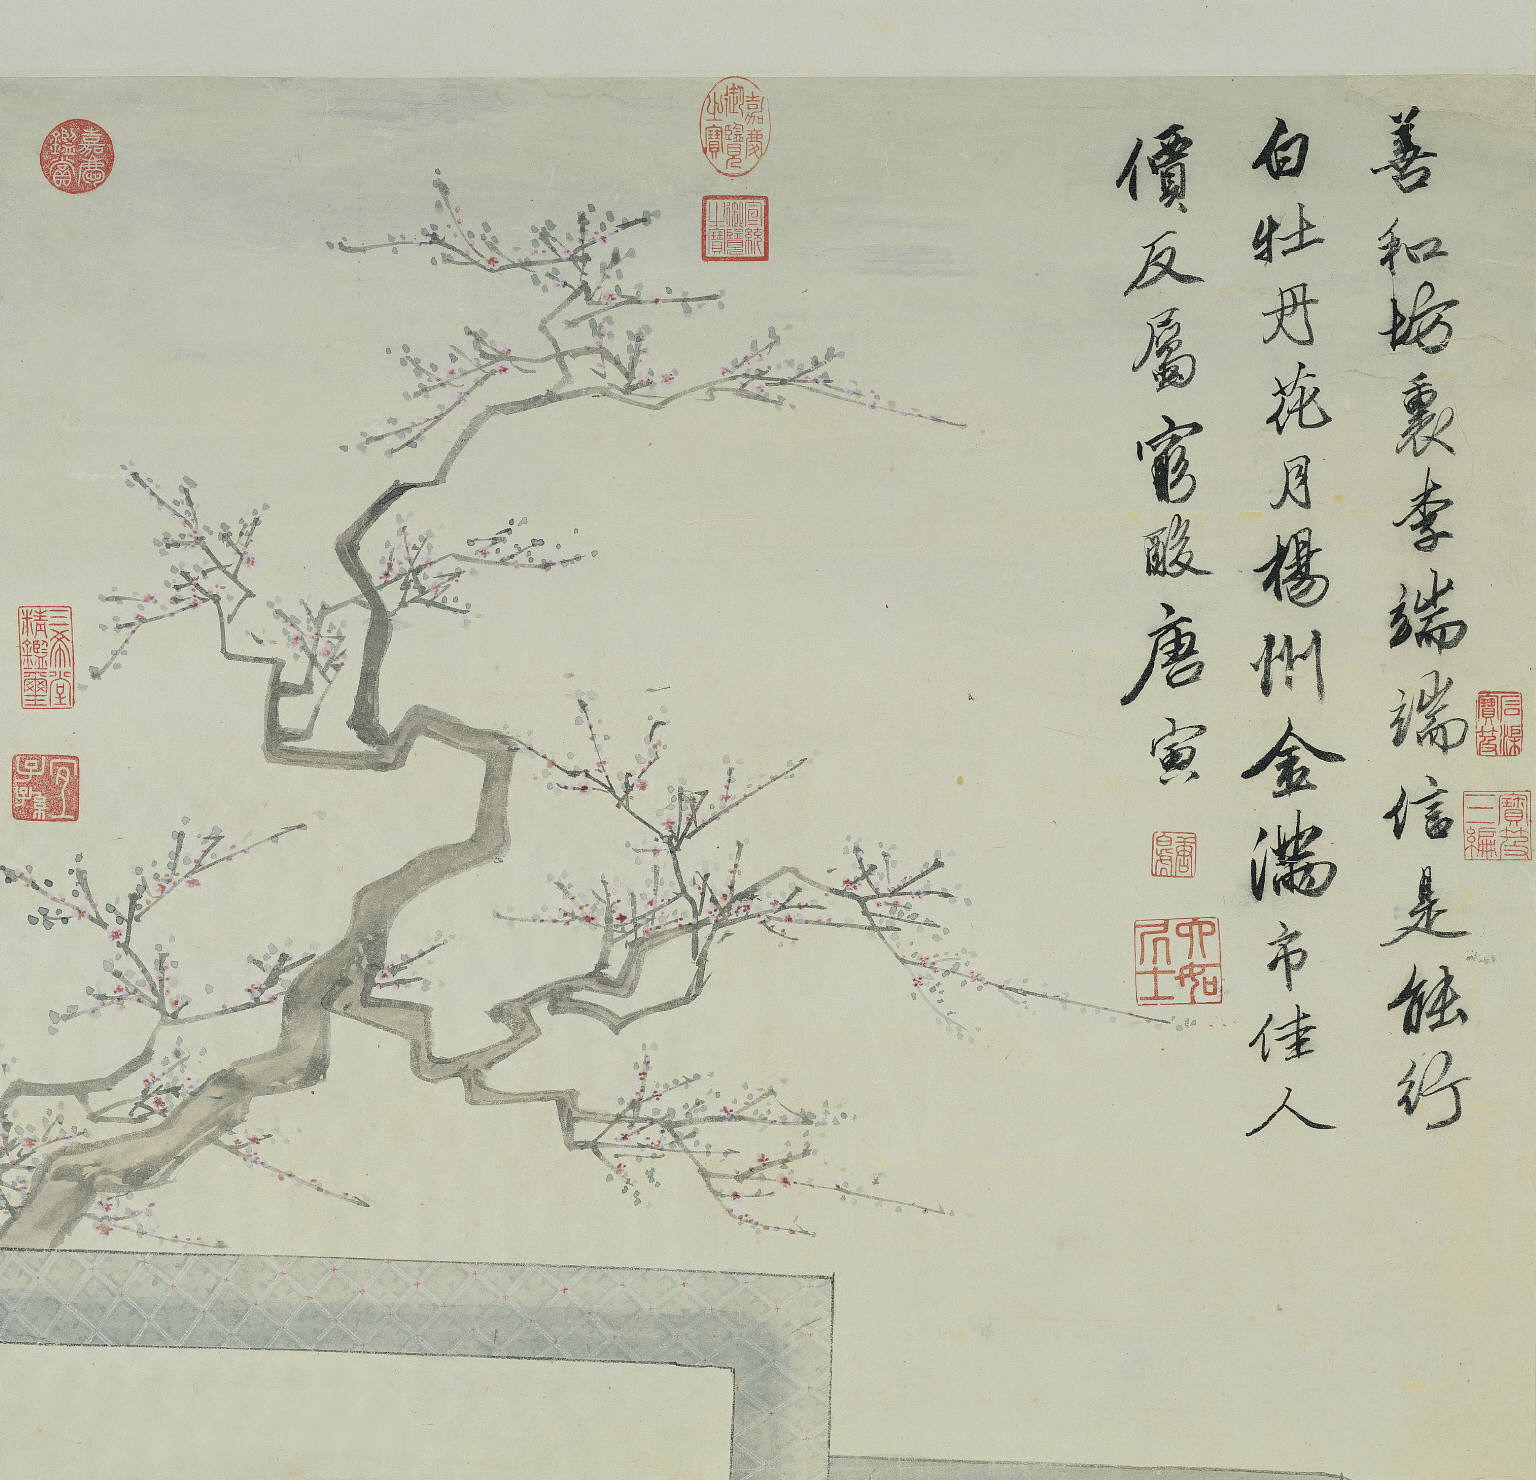 善和坊裏李端端信是能行
白牡丹花月楊州金滿市佳人
價反屬窮酸唐寅
唐寅
六如居士
石渠寶笈
寶笈三編
嘉慶御覽之寶
宣統御覽之寶
嘉慶鑑賞
三希堂精鑑璽
宜子孫